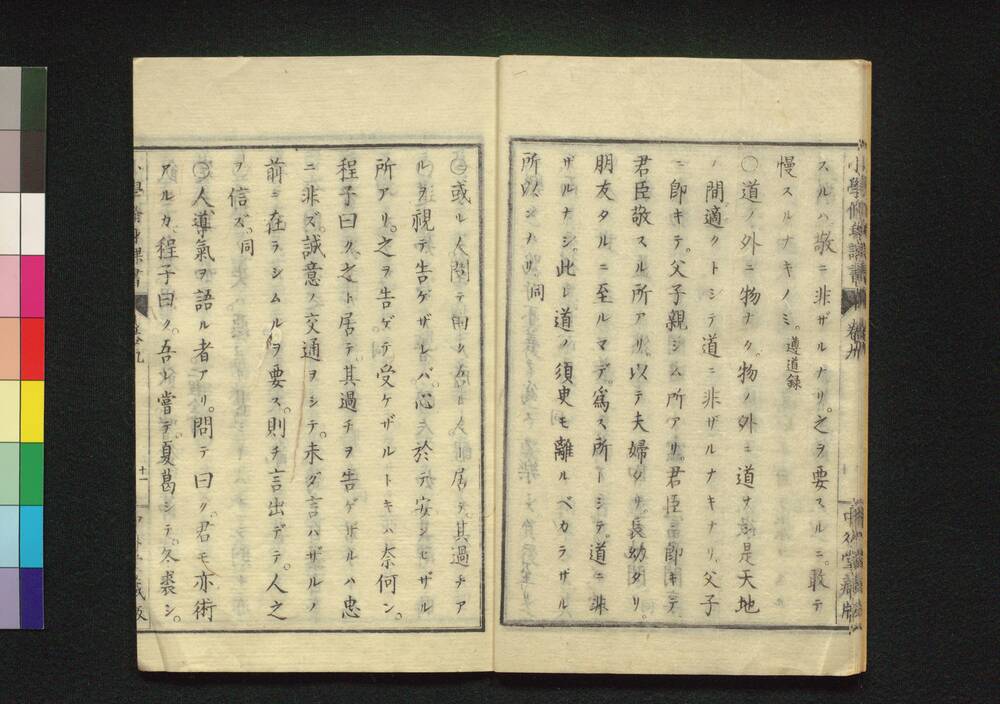 スルハ敬ニ非ザルナリ。之ヲ要スルニ。敢テ
慢スルナキノミ。遵道録
〇道ノ外ニ物ナク。物ノ外ニ道ナシ。是天地
ノ間適クトシテ道ニ非ザルナキナリ。父子
ニ即キテ。父子親シム所アリ。君臣ニ即キテ
君臣敬スル所アリ。以テ夫婦タリ。長幼タリ。
朋友タルニ至ルマデ。爲ス所トシテ。道ニ非
ザルナシ。此レ道ノ須臾モ離ルベカラザル
所以ンナリ。同
〇或ル人問テ曰ク。吾レ人ト居テ。其過チア
ルヲ視テ告ゲザレバ。心ニ於テ安ンゼザル
所アリ。之ヲ告ゲテ受ケザルトキハ奈何ン。
程子曰ク。之ト居テ。其過チヲ告ゲザルハ忠
ニ非ズ。誠意ノ交通ヲシテ。未ダ言ハザルノ
前ニ在ラシムルヲ要ス。則チ言出デテ。人之
ヲ信ズ。同
〇人導氣ヲ語ル者アリ。問テ曰ク。君モ亦術
アルカ。程子曰ク。吾レ嘗テ。夏葛シテ。冬裘シ。